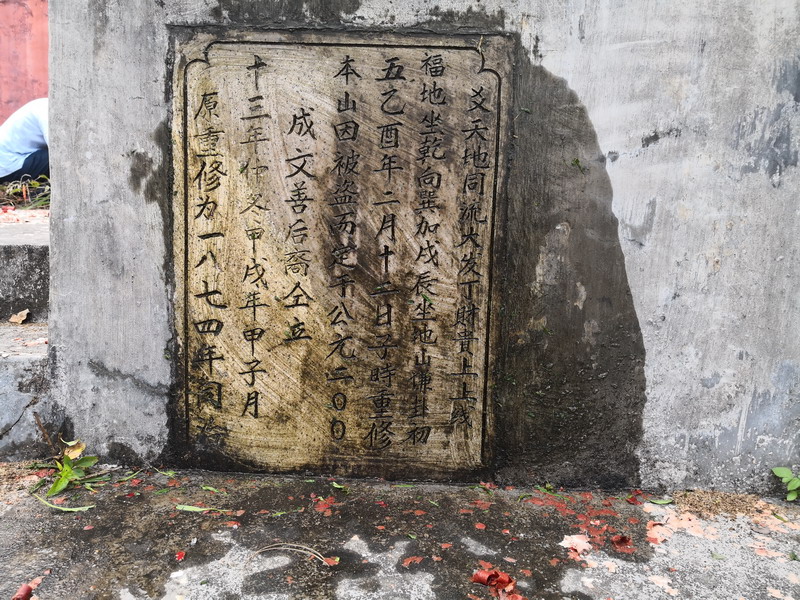 原重修为一八七四年同治
十三年仲冬甲戌年甲子月
成文善后裔仝立
本山因被盗而定于公元二00
五乙酉年二月十二日子時重修
福地坐乾向巽加戌辰坐地山卦初
爻天地同流大发丁財貴上上线